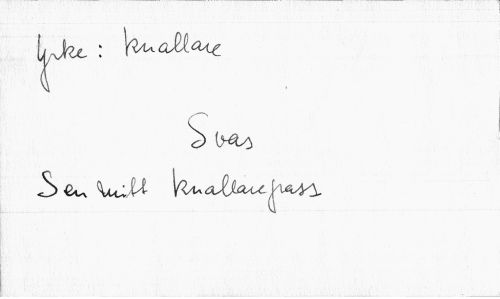 Yrke: knallare
Svas
Sen mitt knallarepass